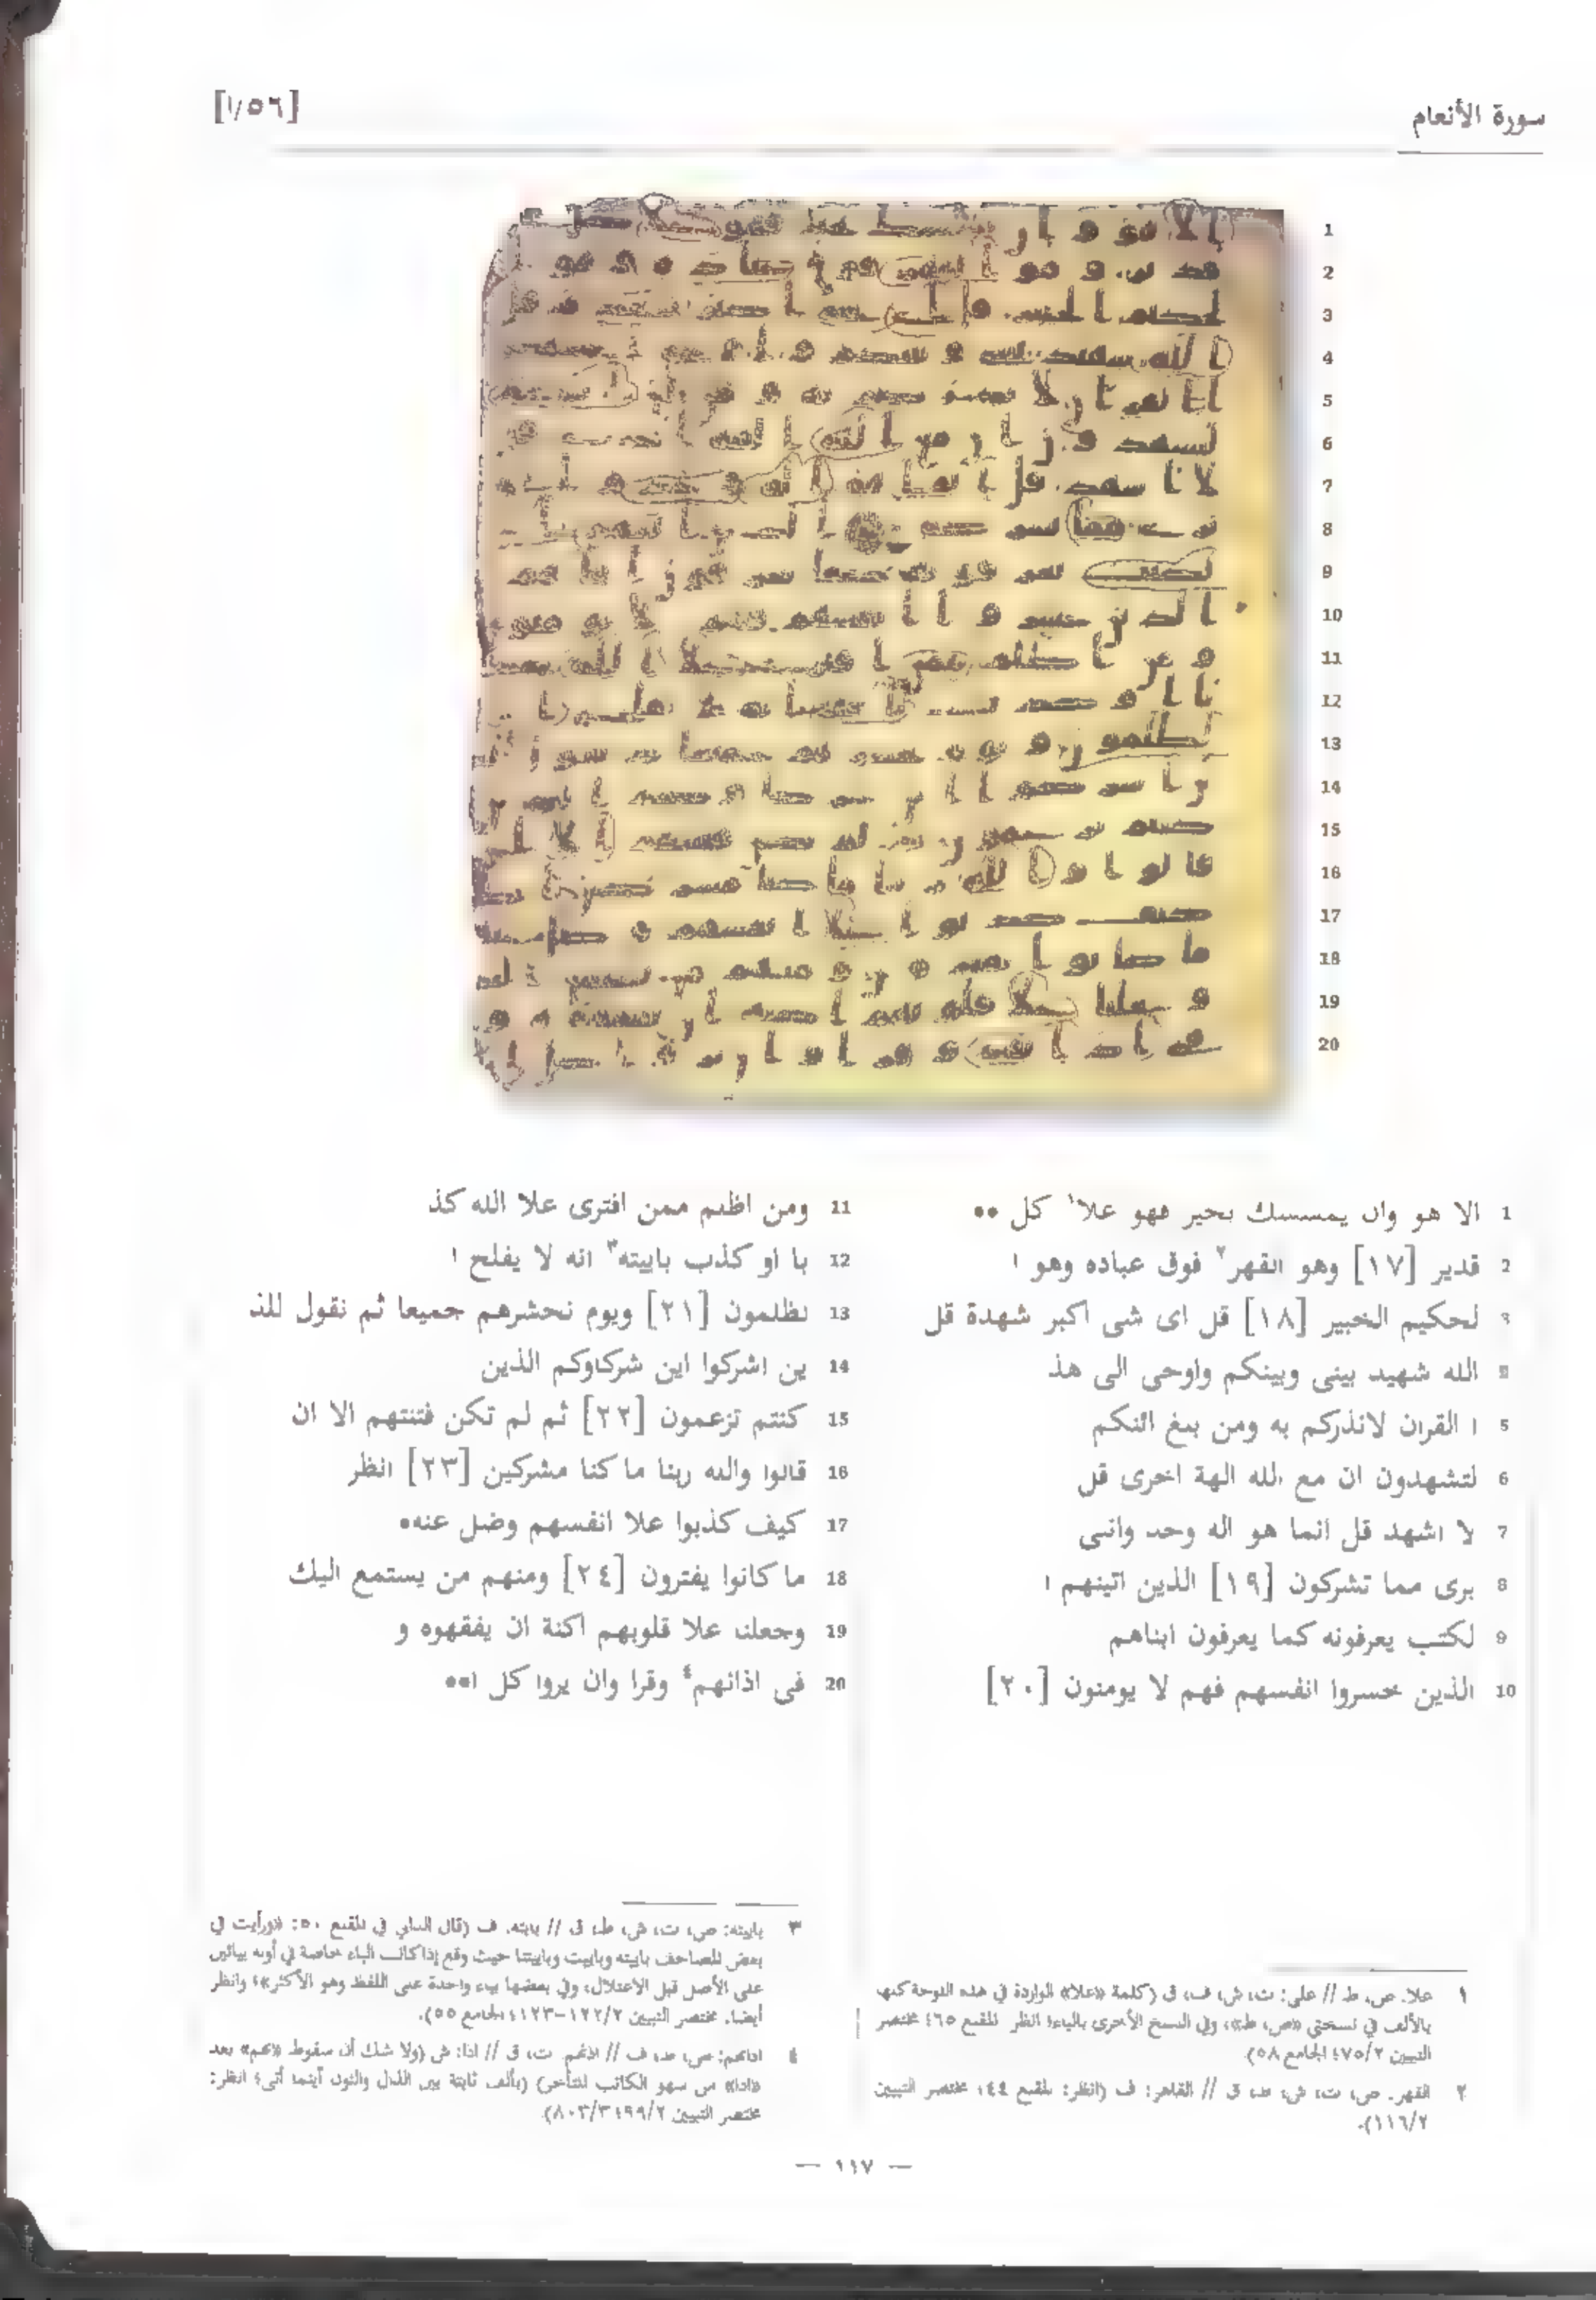 سورة الأنعام
[٥٦/ا]
1 الا هو وان يمسسك بخير فهو علا١ كل ••
2 قدير [١٧] وهو القهر٢ فوق عباده وهو ا
3 لحكيم الخبير [١٨] قل اى شى اكبر شهدة قل
4 الله شهيد بينى وبينكم واوحى الى هذ
5 ا القران لانذركم به ومن بلغ ائنكم
6 لتشهدون ان مع الله الهة اخرى قل
7 لا اشهد قل انما هو اله وحد وانى
8 برى مما تشركون [١٩] الذين اتينهم ا
9 لكتب يعرفونه كما يعرفون ابناهم
10 الذين خسروا انفسهم فهم لا يومنون [٢٠]
11 ومن اظلم ممن افترى علا الله كذ
12 با او كذب باييته٣ انه لا يفلح ا
13 لظلمون [٢١] ويوم نحشرهم جميعا ثم نقول للذ
14 ين اشركوا اين شركاوكم الذين
15 كنتم تزعمون [٢٢] ثم لم تكن فتنتهم الا ان
16 قالوا والله ربنا ما كنا مشركين [٢٣] انظر
17 كيف كذبوا علا انفسهم وضل عنه•
18 ما كانوا يفترون [٢٤] ومنهم من يستمع اليك
19 وجعلنا علا قلوبهم اكنة ان يفقهوه و
20 فى اذانهم٤ وقرا وان يروا كل ا••
١ علا: ص، ط // على: ت، ش، ف، ق (كلمة «علا» الواردة في هذه اللوحة كلها
بالألف في نسختي «ص، ط»، وفي النسخ الأخرى بالياء؛ انظر: المقنع ٦٥؛ مختصر
التبيين ٧٥/٢؛ الجامع ٥٨).
٢ القهر: ص، ت، ش، ط، ق // القاهر: ف (انظر: المقنع ٤٤؛ مختصر التبيين
١١٦/٢).
٣ باييته: ص، ت، ش، ط، ق // بايته: ف (قال الداني في المقنع ٥٠: «ورأيت في
بعض المصاحف باييته وباييت وباييتنا حيث وقع إذا كانت الباء خاصة في أوله بيائين
على الأصل قبل الاعتلال، وفي بعضها بياء واحدة على اللفظ وهو الأكثر»؛ وانظر
أيضا: مختصر التبيين ١٢٢/٢-١٢٣؛ الجامع ٥٥).
٤ اذانهم: ص، ط، ف // اذنهم: ت، ق // اذا: ش (ولا شك أن سقوط «نهم» بعد
«اذا» من سهو الكاتب المتأخر) (بألف ثابتة بين الذال والنون أينما أتى؛ انظر:
مختصر التبيين ٩٩/٢؛ ٨٠٣/٣).
— ١١٧ —